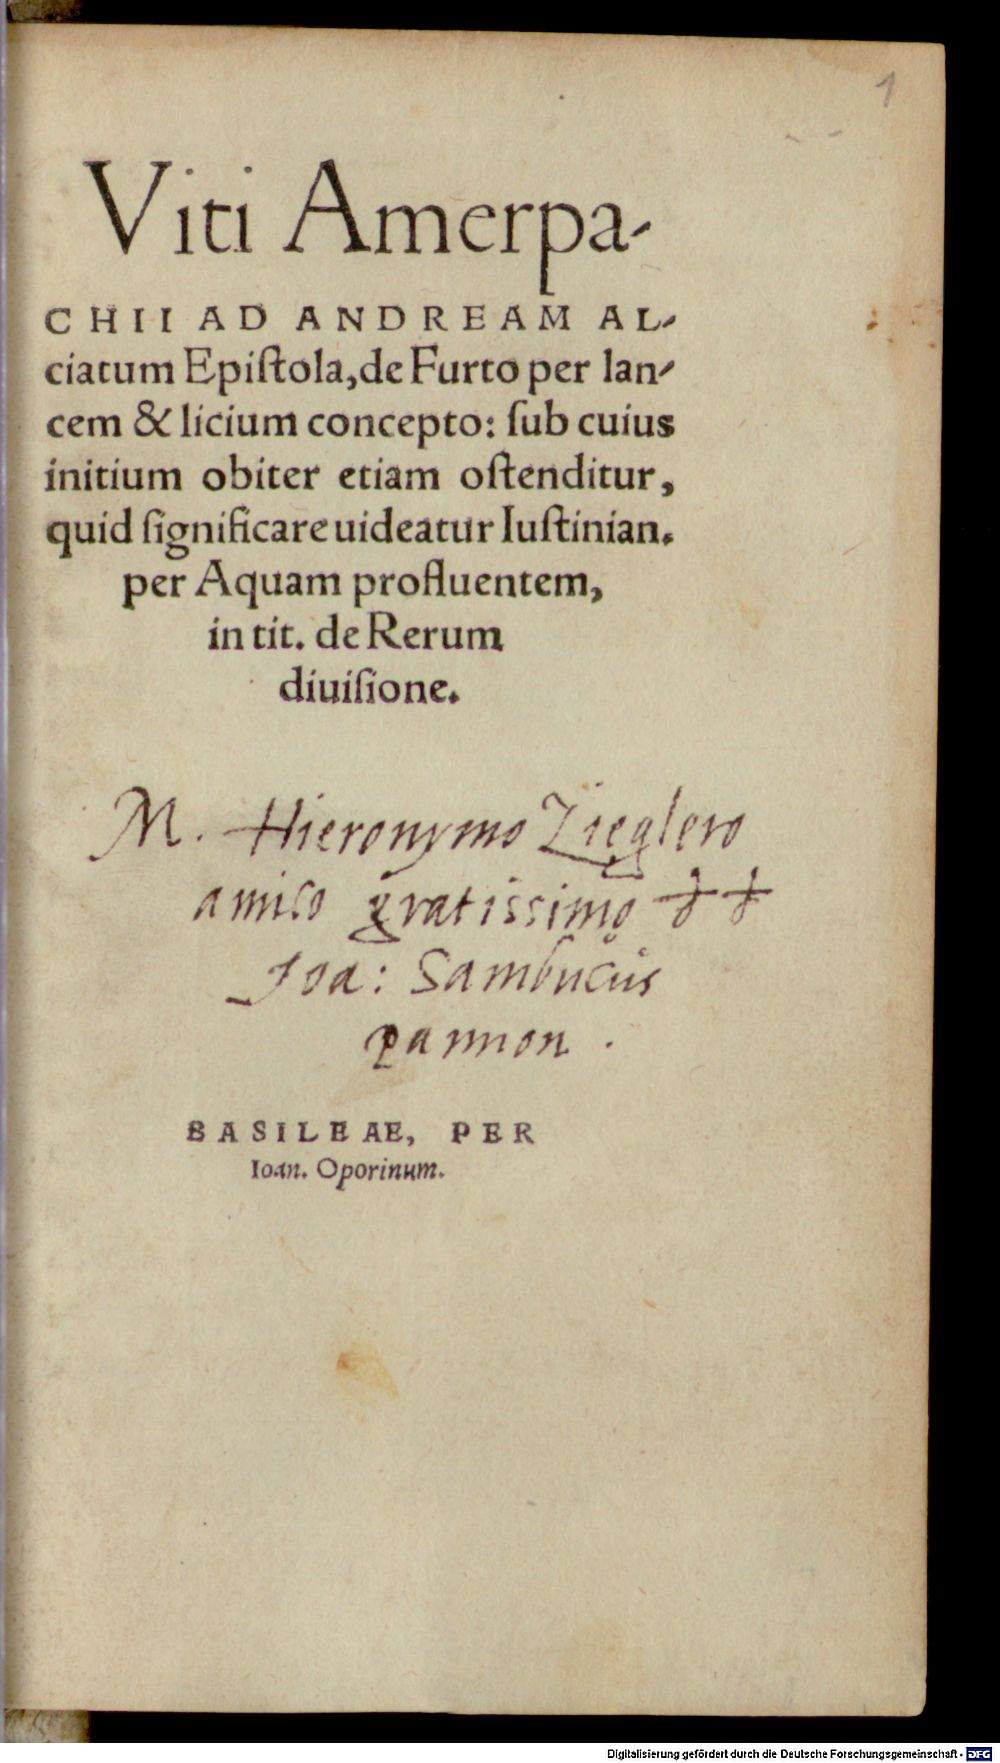 1
Viti Amerpa-
CHII AD ANDREAM AL-
ciatum Epiſtola, de Furto per lan-
cem & licium concepto: ſub cuius
initium obiter etiam oſtenditur,
quid ſignificare uideatur Iuſtinian.
per Aquam profluentem,
in tit. de Rerum
diuiſione.
M. Hieronymo Zieglero
amico gratissimo dd
Ioa: Sambucus
pannon.
BASILEAE, PER
Ioan. Oporinum.
Digitalisierung gefördert durch die Deutsche Forschungsgemeinschaft - DFG